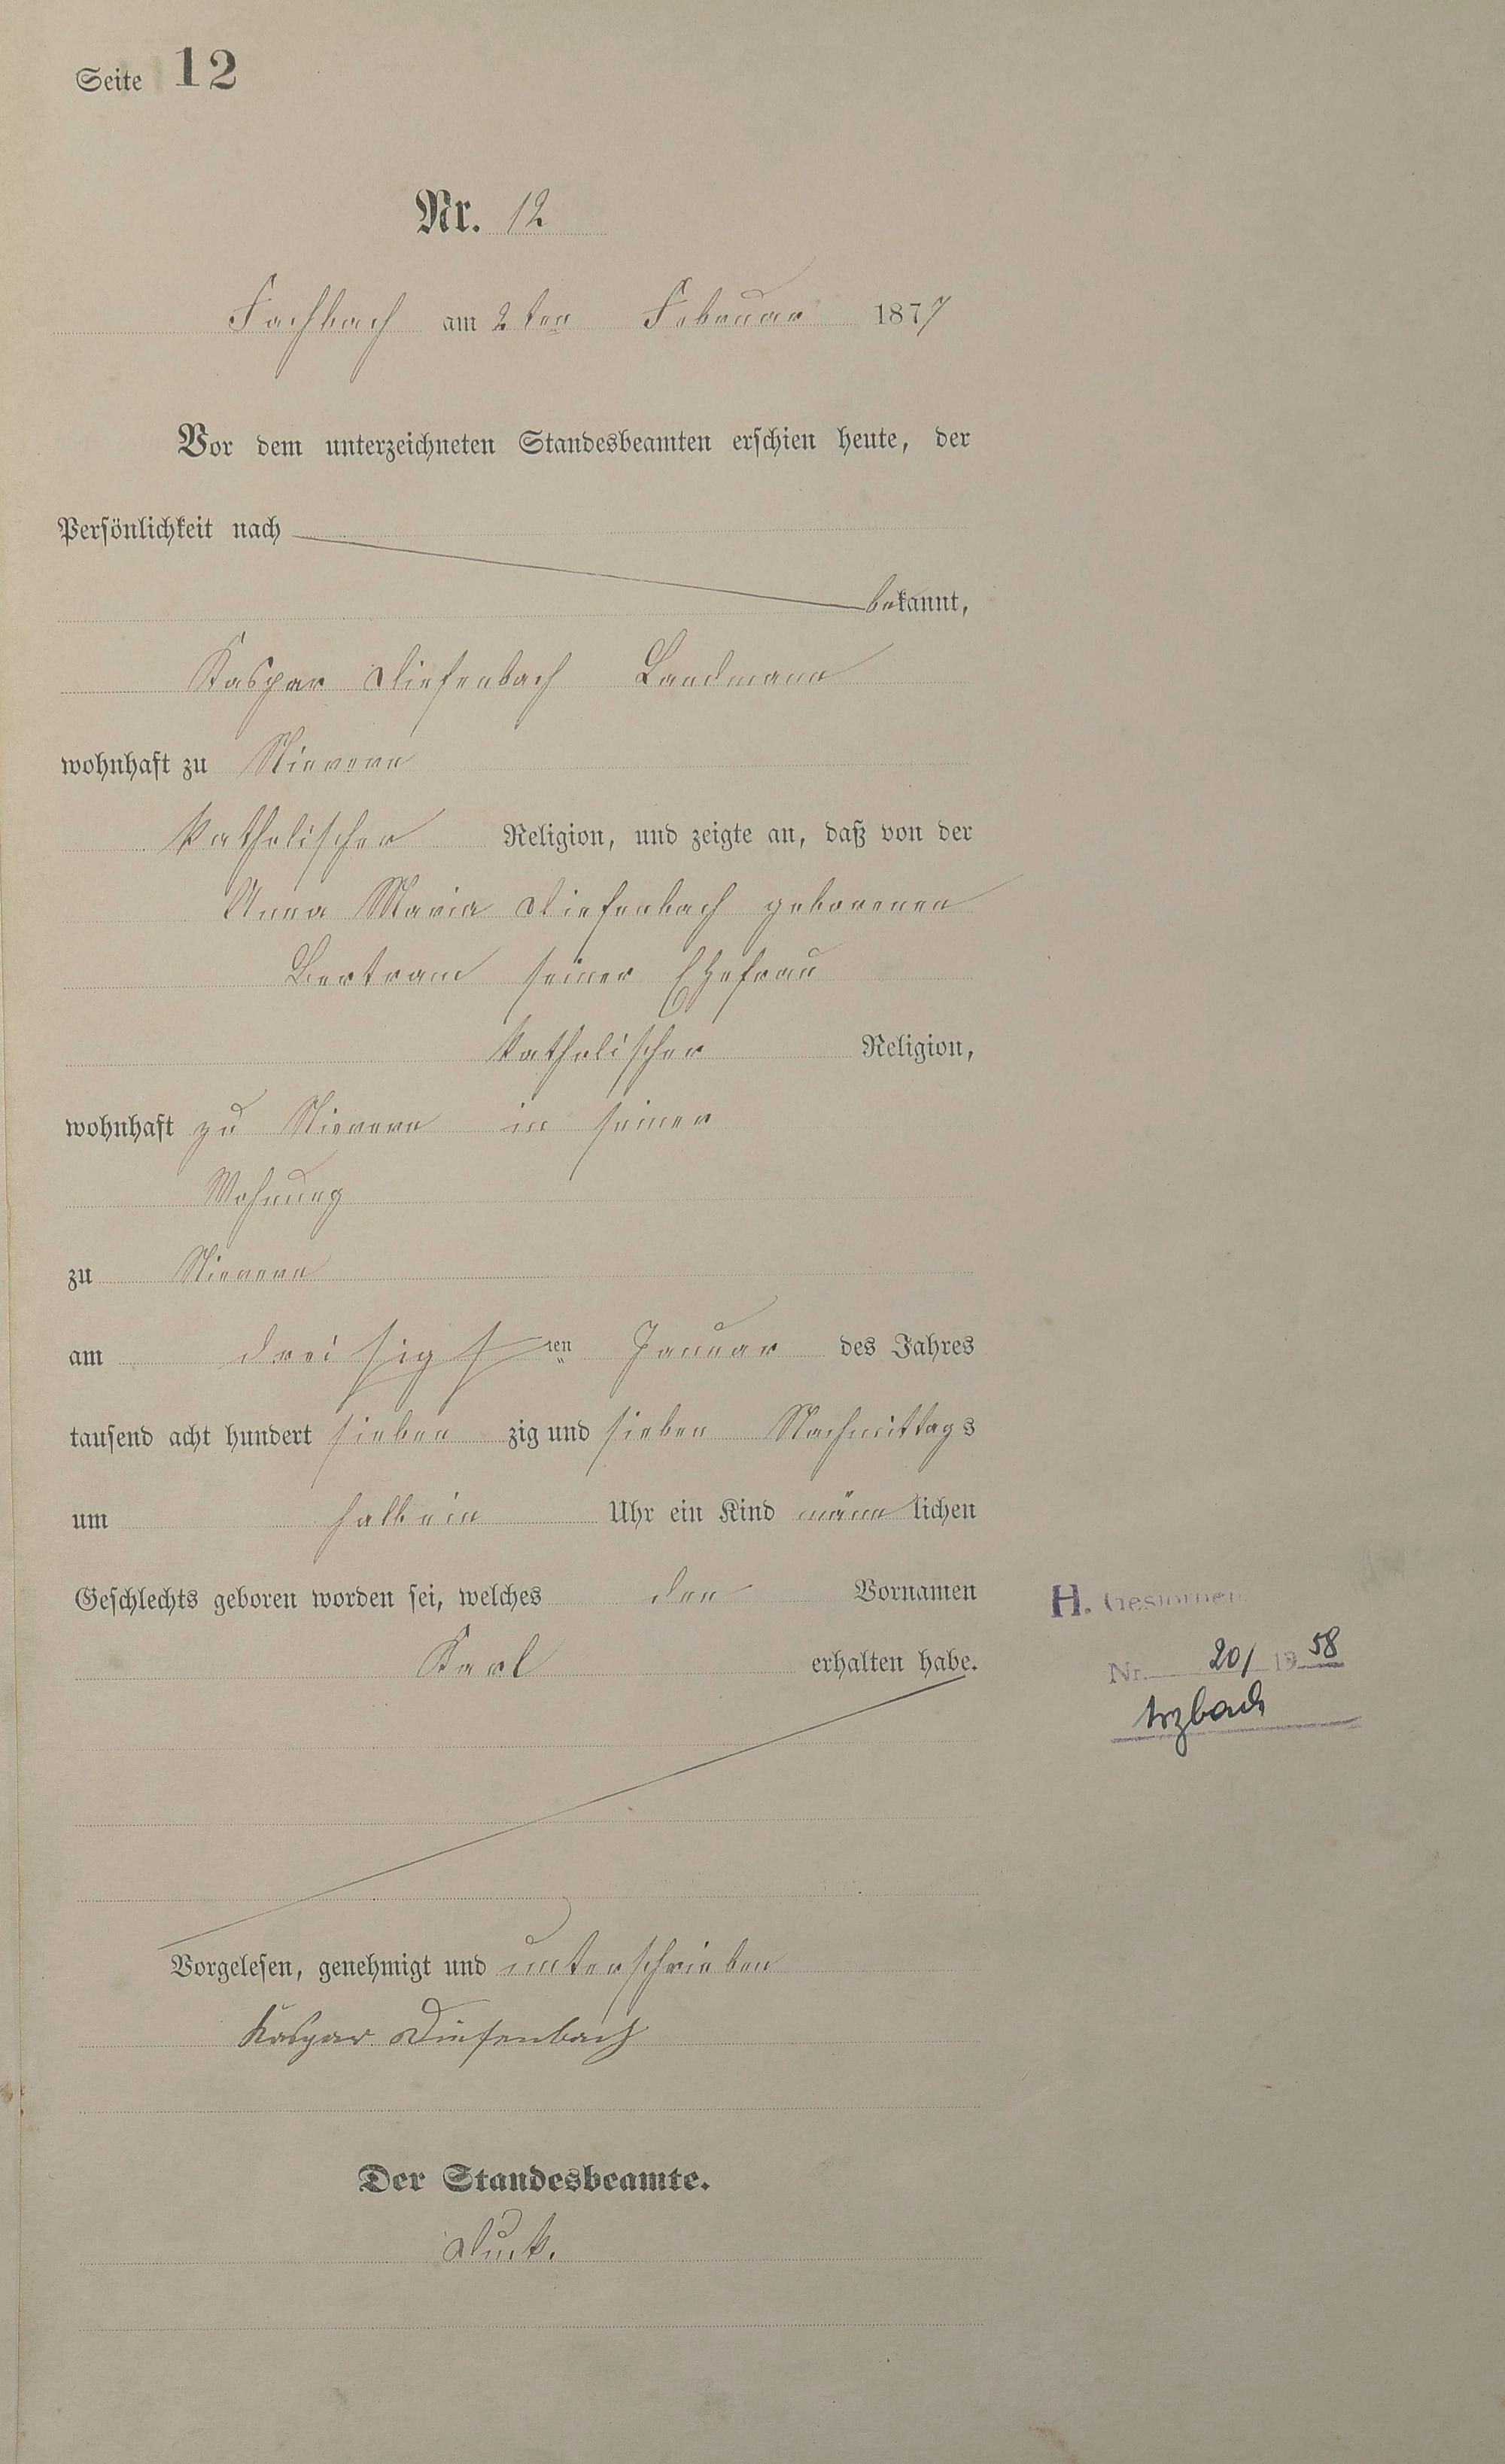 Seite 12
Nr. 12
Fachbach am 2ten Februar 1877
Vor dem unterzeichneten Standesbeamten erschien heute, der
Persönlichkeit nach
bekannt,
Kaspar Diefenbach Landmann
wohnhaft zu Nievern
katholischer Religion, und zeigte an, daß von der
Anna Maria Diefenbach geborenen
Bertram seiner Ehefrau
katholischer Religion,
wohnhaft zu Nievern in seiner
Wohnung
zu Nievern
am dreisigsten Januar des Jahres
tausend acht hundert sieben zig und sieben Nachmittags
um halb ein Uhr ein Kind männlichen
Geschlechts geboren worden sei, welches den Vornamen
Karl erhalten habe.
H. Gestorben
Nr. 20/1958
Arzbach
Vorgelesen, genehmigt und unterschrieben
Kaspar Diefenbach
Der Standesbeamte.